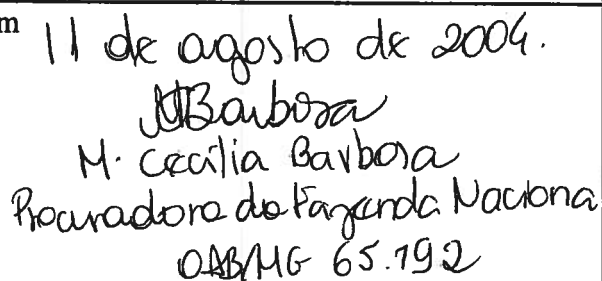 m 11 de agosto de 2004.
MBarbosa
M. Cecília Barbosa
Procuradora da Fazenda Naciona
OAB/MG 65.192